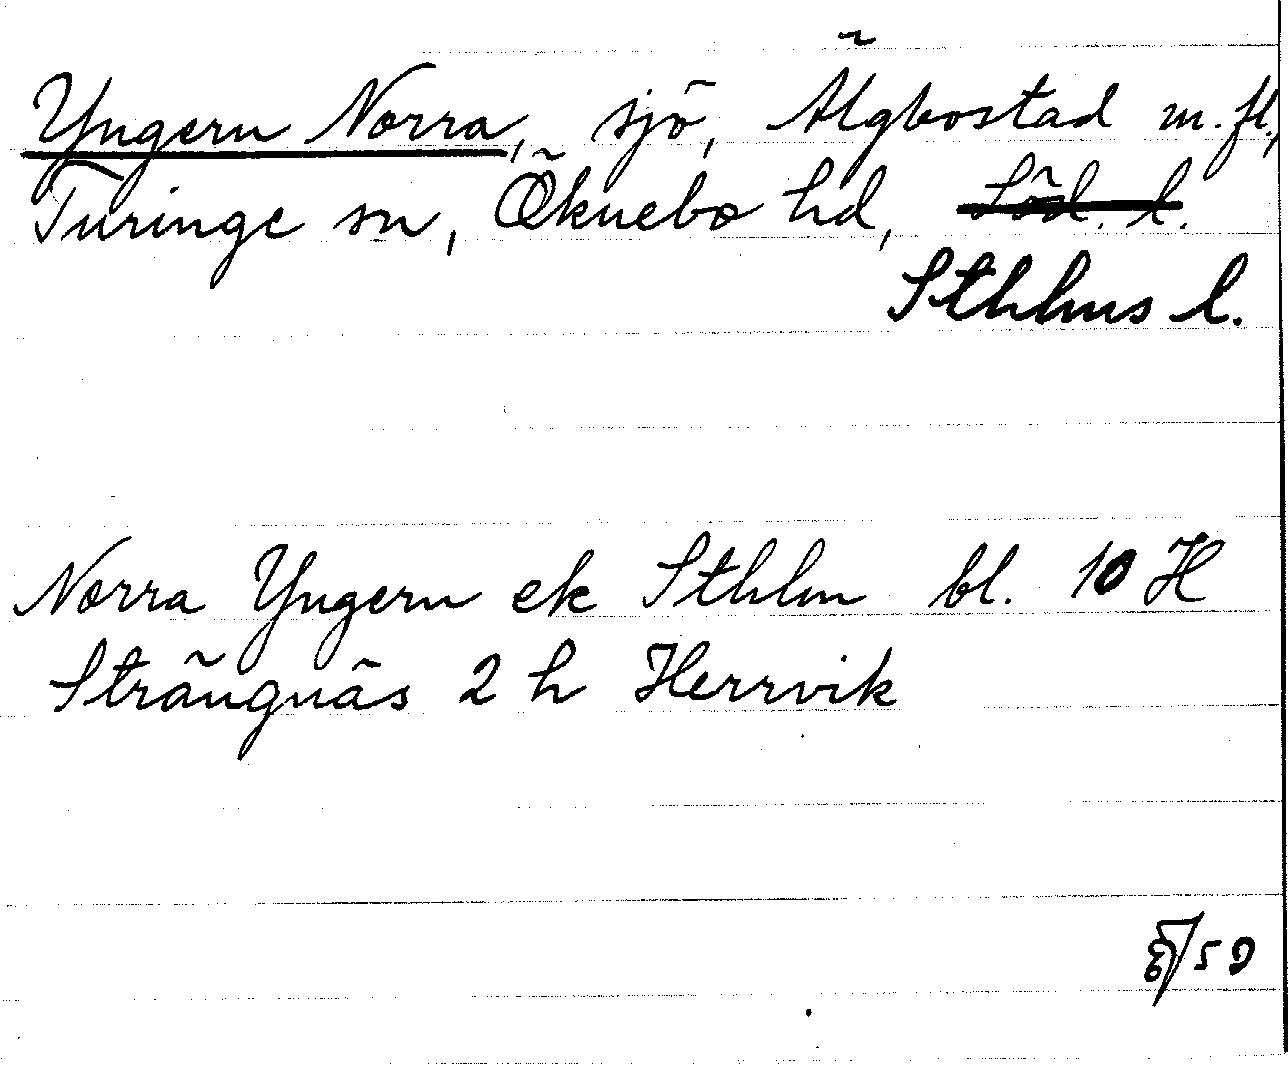 Yngern Norra, sjö, Älgbostad m.fl.,
Turinge sn, Öknebo hd, Söd. l.
Sthlms l.
Norra Yngern ek Sthlm bl. 10 H
Strängnäs 2 h Herrvik
59